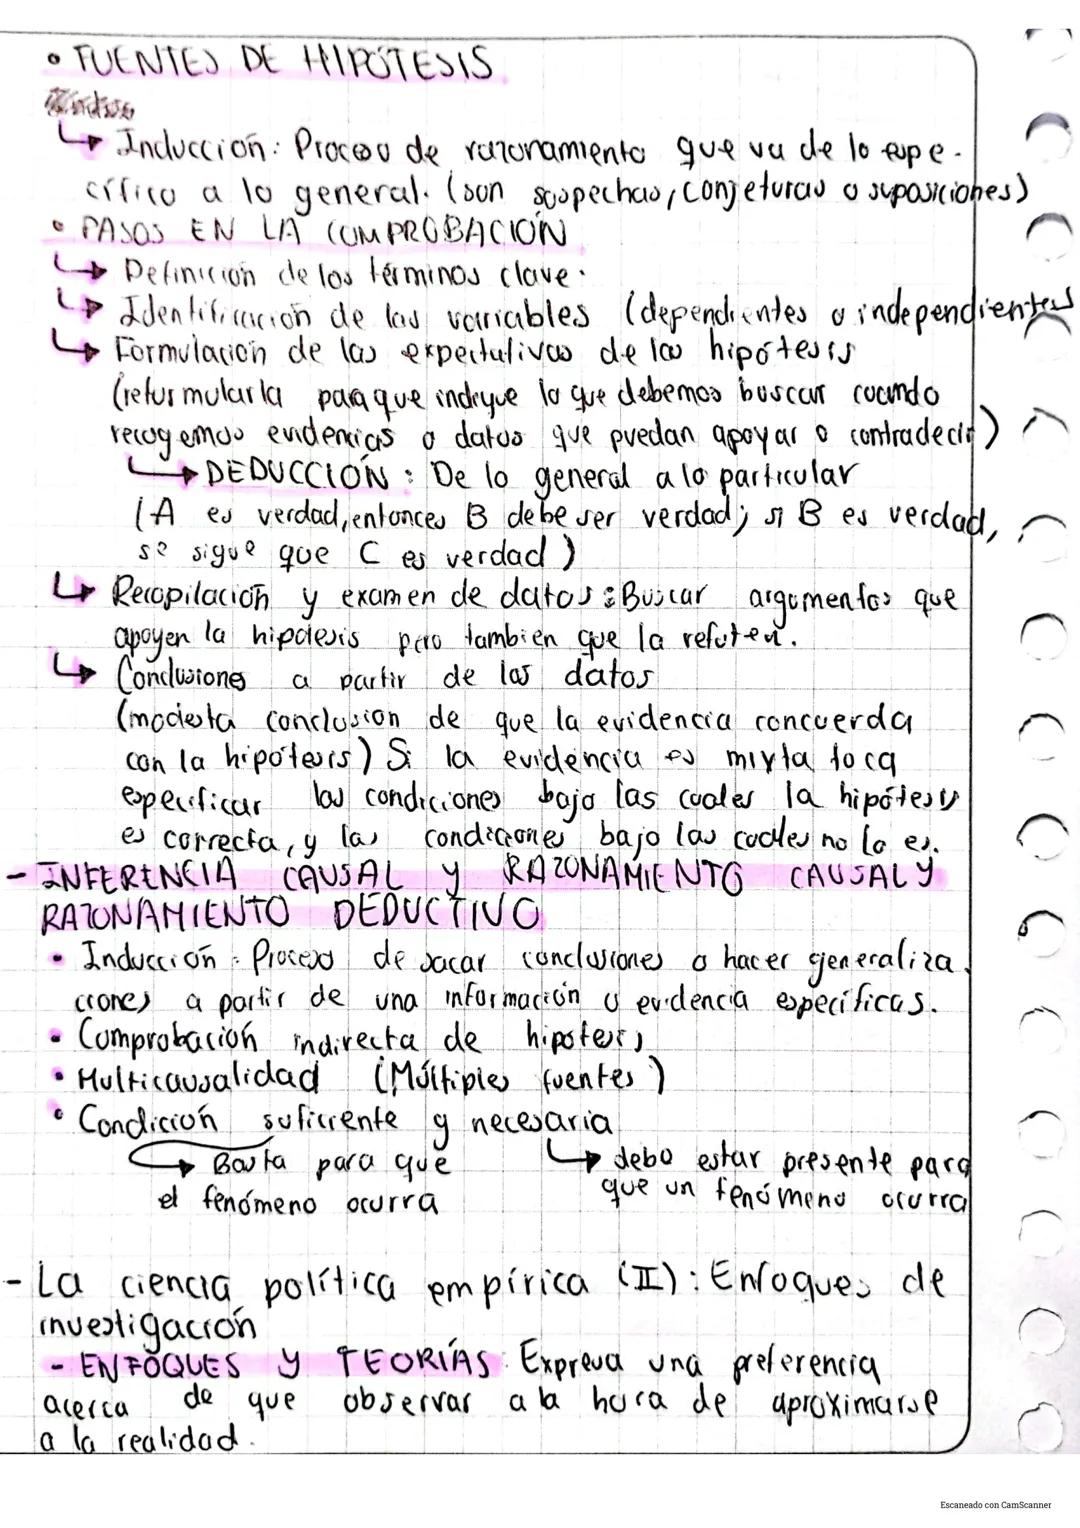 • FUENTES DE HIPÓTESIS
↳ Inducción: Proceso de razonamiento que va de lo espe-
cífico a lo general. (son sospechas, conjeturas o suposiciones)
• PASOS EN LA COMPROBACIÓN
↳ Definición de los términos clave.
↳ Identificación de las variables (dependientes o independientes
↳ Formulación de las expectativas de las hipótesis
(reformularla para que indique lo que debemos buscar cuando
recogemos evidencias o datos que puedan apoyar o contradecir)
↳ DEDUCCIÓN: De lo general a lo particular
(A es verdad, entonces B debe ser verdad; si B es verdad,
se sigue que C es verdad)
↳ Recopilación y examen de datos: Buscar argumentos que
apoyen la hipótesis pero tambien que la refuten.
↳ Conclusiones a partir de los datos
(modesta conclusion de que la evidencia concuerda
con la hipótesis) Si la evidencia es mixta toca
especificar las condiciones bajo las cuales la hipótesis
es correcta, y las condiciones bajo las cuales no lo es.
- INFERENCIA CAUSAL y RAZONAMIENTO CAUSAL Y
RAZONAMIENTO DEDUCTIVO
• Inducción: Proceso de sacar conclusiones o hacer generaliza.
ciones a partir de una información o evidencia específicas.
• Comprobación indirecta de hipótesis
• Multicausalidad (Múltiples fuentes)
• Condición suficiente y necesaria
↳ Basta para que ↳ debo estar presente para
el fenómeno ocurra que un fenómeno ocurra
- La ciencia política empírica (II): Enfoques de
investigación
- ENFOQUES Y TEORÍAS: Expresa una preferencia
acerca de que observar a la hora de aproximarse
a la realidad.
Escaneado con CamScanner